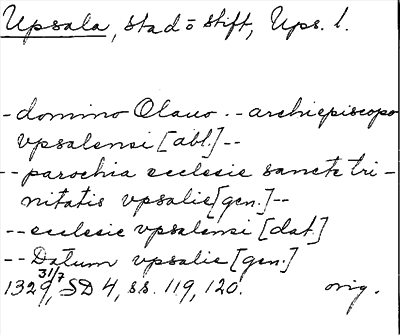 Upsala, stad o stift, Ups. l.
-domino Olauo.-archiepiscopo
vpsalensi [abl.]--
--parochia ecclesie sancte tri-
nitatis vpsalie [gen.]--
--ecclesie vpsalensi [dat.]
--Datum vpsalie [gen.]
1329 31/7, SD 4, ss. 119, 120. orig.